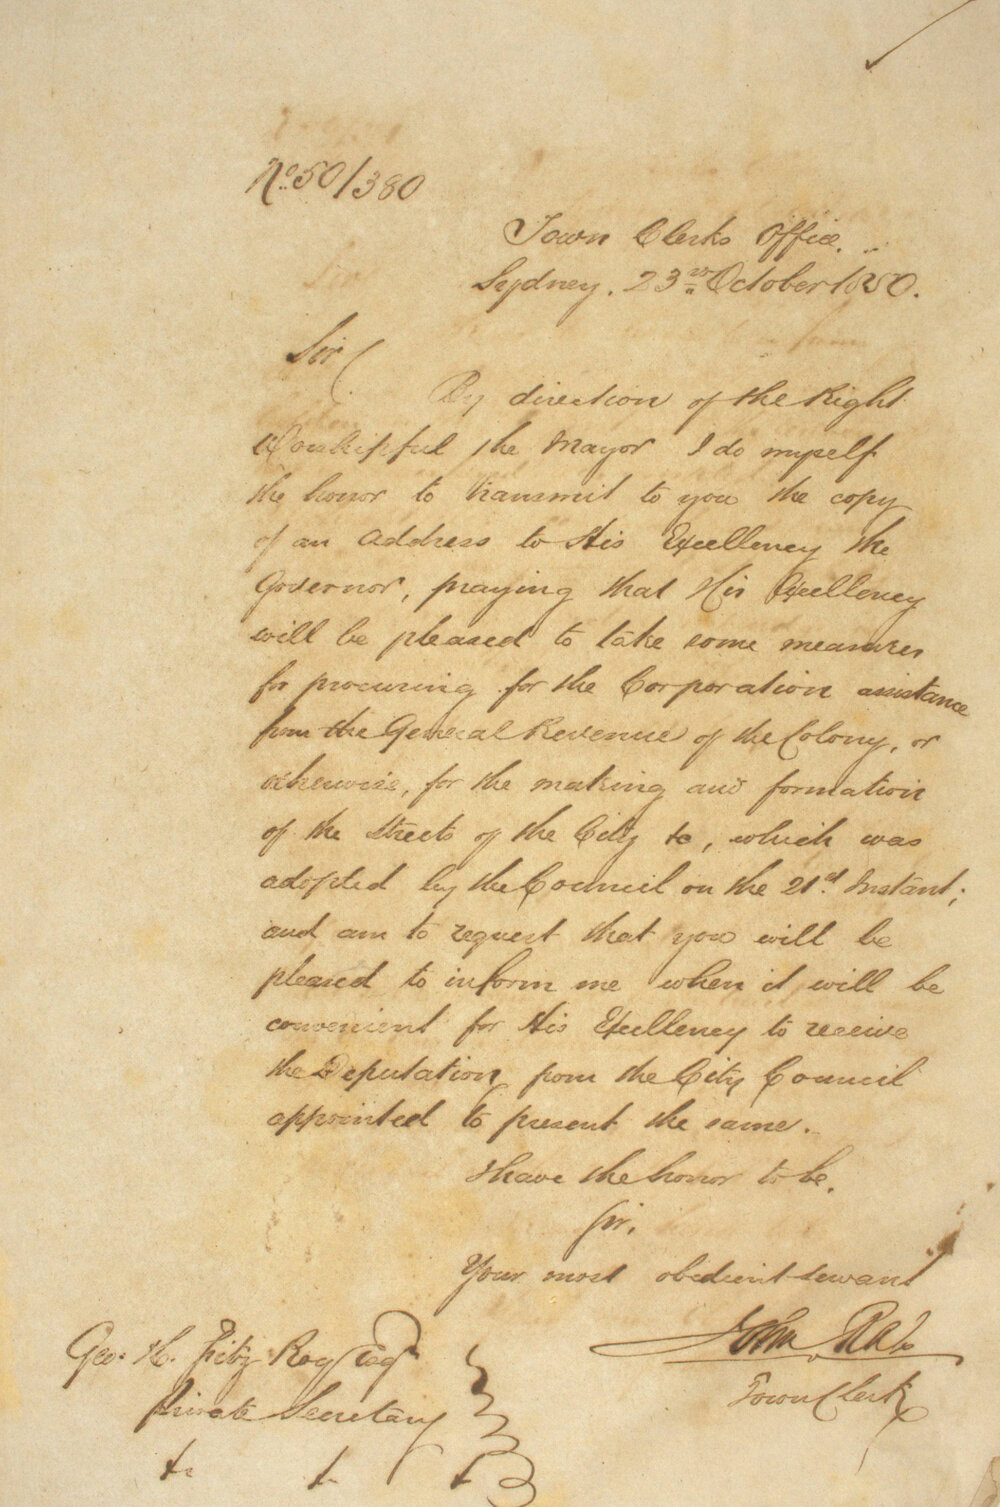 No. 50/380
Town Clerks Office.
Sydney. 23rd October 1850.
Sir
By direction of the Right
Worshipful the Mayor I do myself
the honor to transmit to you the copy
of an Address to His Excellency the
Governor, praying that His Excellency
will be pleased to take some measures
for procuring for the Corporation assistance
from the General Revenue of the Colony, or
otherwise, for the making and formation
of the Streets of the City &c, which was
adopted by the Council on the 21st Instant;
and am to request that you will be
pleased to inform me when it will be
convenient for His Excellency to receive
the Deputation from the City Council
appointed to present the same.
I have the honor to be.
Sir.
Your most obedient servant
John Rae
Town Clerk
Geo. H. Fitz Roy Esqr
Private Secretary
&c &c &c